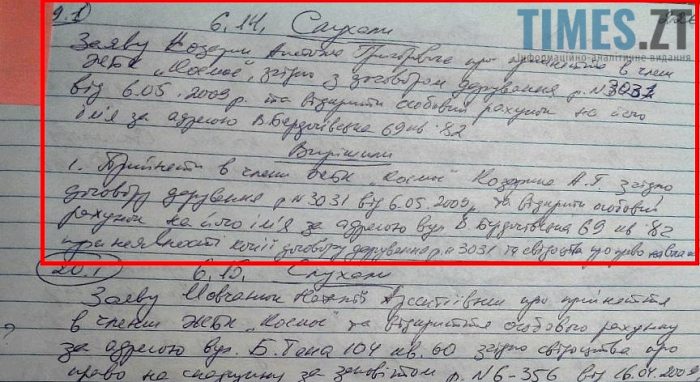 9.1 6.14. Слухали
TIMES.ZT
інформаційно-аналітичне видання
Заяву Антона про прийняття в члени
ЖБК "Космос", згідно з договором дарування р. №3031
від 6.05.2009 р. та відкрити особовий рахунок на його
ім'я за адресою В.Бердичівська 69 кв. 82
Вирішили
1. Прийняти в члени ЖБК Космос А.Г. згідно
договору дарування р №3031 від 6.05.2009, та відкрити особовий
рахунок на його ім'я за адресою вул В. Бердичівська 69 кв 82
при наявності копії договору дарування р.№3031 та свідоцтва про право на
20.1 6.15. Слухали
Заяву Мовчанюк Наталії про прийняття
в члени ЖБК "Космос" та відкриття особового рахунку
за адресою вул. Б.Тена 104 кв. 60 згідно свідоцтва про
право на спадщину за заповітом р. №6-356 від 16.04.2009